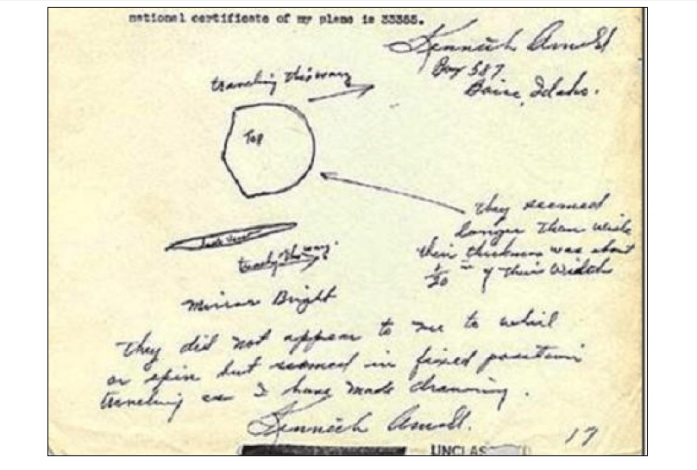 national certificate of my plane is 33365.
Kenneth Arnold
Box 587
Boise, Idaho.
traveling this way
Top
they seemed
longer than wide
their thickness was about
1/20 th of their width
side view
traveling this way.
Mirror Bright
They did not appear to me to whirl
or spin but seemed in fixed position
traveling as I have made drawing.
Kenneth Arnold.
17
UNCLAS